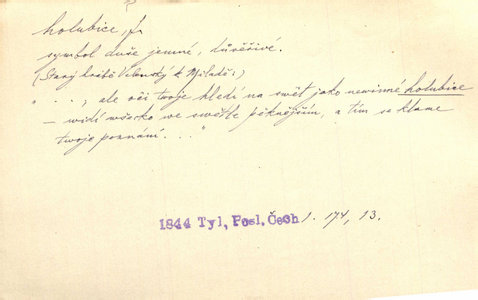 holubice, f.
symbol duše jemné, důvěřivé.
(Starý hrabě Velenský k Miladě:)
" . . . , ale oči twoje hledí na swět jako newinné holubice
— widí wšecko we swětle pěknějším, a tím se klame
twoje poznání. . . "
1844 Tyl, Posl. Čech 1. 174, 13.